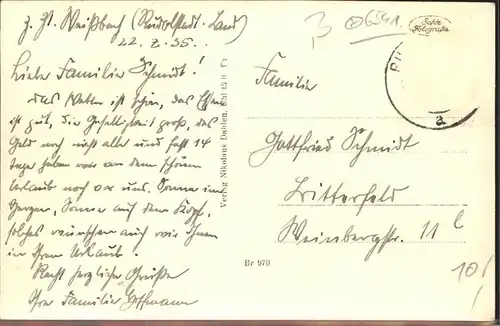 z. Zt. Weißbach (Rudolstadt-Land)
22. 7. 35.
Liebe Familie Schmidt!
Das Wetter ist schön, das Essen
ist gut, die Geselligkeit groß, das
Geld noch nicht alle und fast 14
Tage haben wir an dem schönen
Urlaub noch vor uns. Sonne im
Herzen, Sonne auf dem Kopf,
solches wünschen auch wir Ihnen
in Ihrem Urlaub.
Recht herzliche Grüße
Ihre Familie
Verlag Nikolaus Dahlen,
Br 970
Echte
Fotografie
a
Familie
Gottfried Schmidt
Bitterfeld
Weinbergstr. 11
10